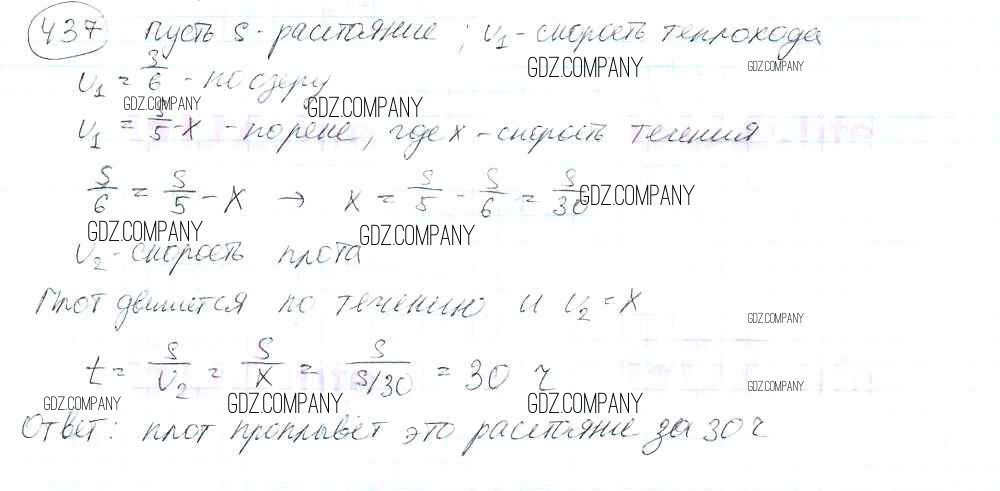 437 пусть S - расстояние ; υ₁ - скорость теплохода
GDZ.COMPANY
υ₁ = S/6 - по озеру
GDZ.COMPANY GDZ.COMPANY
υ₁ = S/5 - x - по реке, где x - скорость течения
S/6 = S/5 - x → x = S/5 - S/6 = S/30
GDZ.COMPANY
GDZ.COMPANY GDZ.COMPANY
υ₂ - скорость плота
Плот движется по течению и υ₂ = x
GDZ.COMPANY
t = S/υ₂ = S/x = S/(S/30) = 30 ч
GDZ.COMPANY
GDZ.COMPANY GDZ.COMPANY GDZ.COMPANY
Ответ: плот проплывёт это расстояние за 30 ч